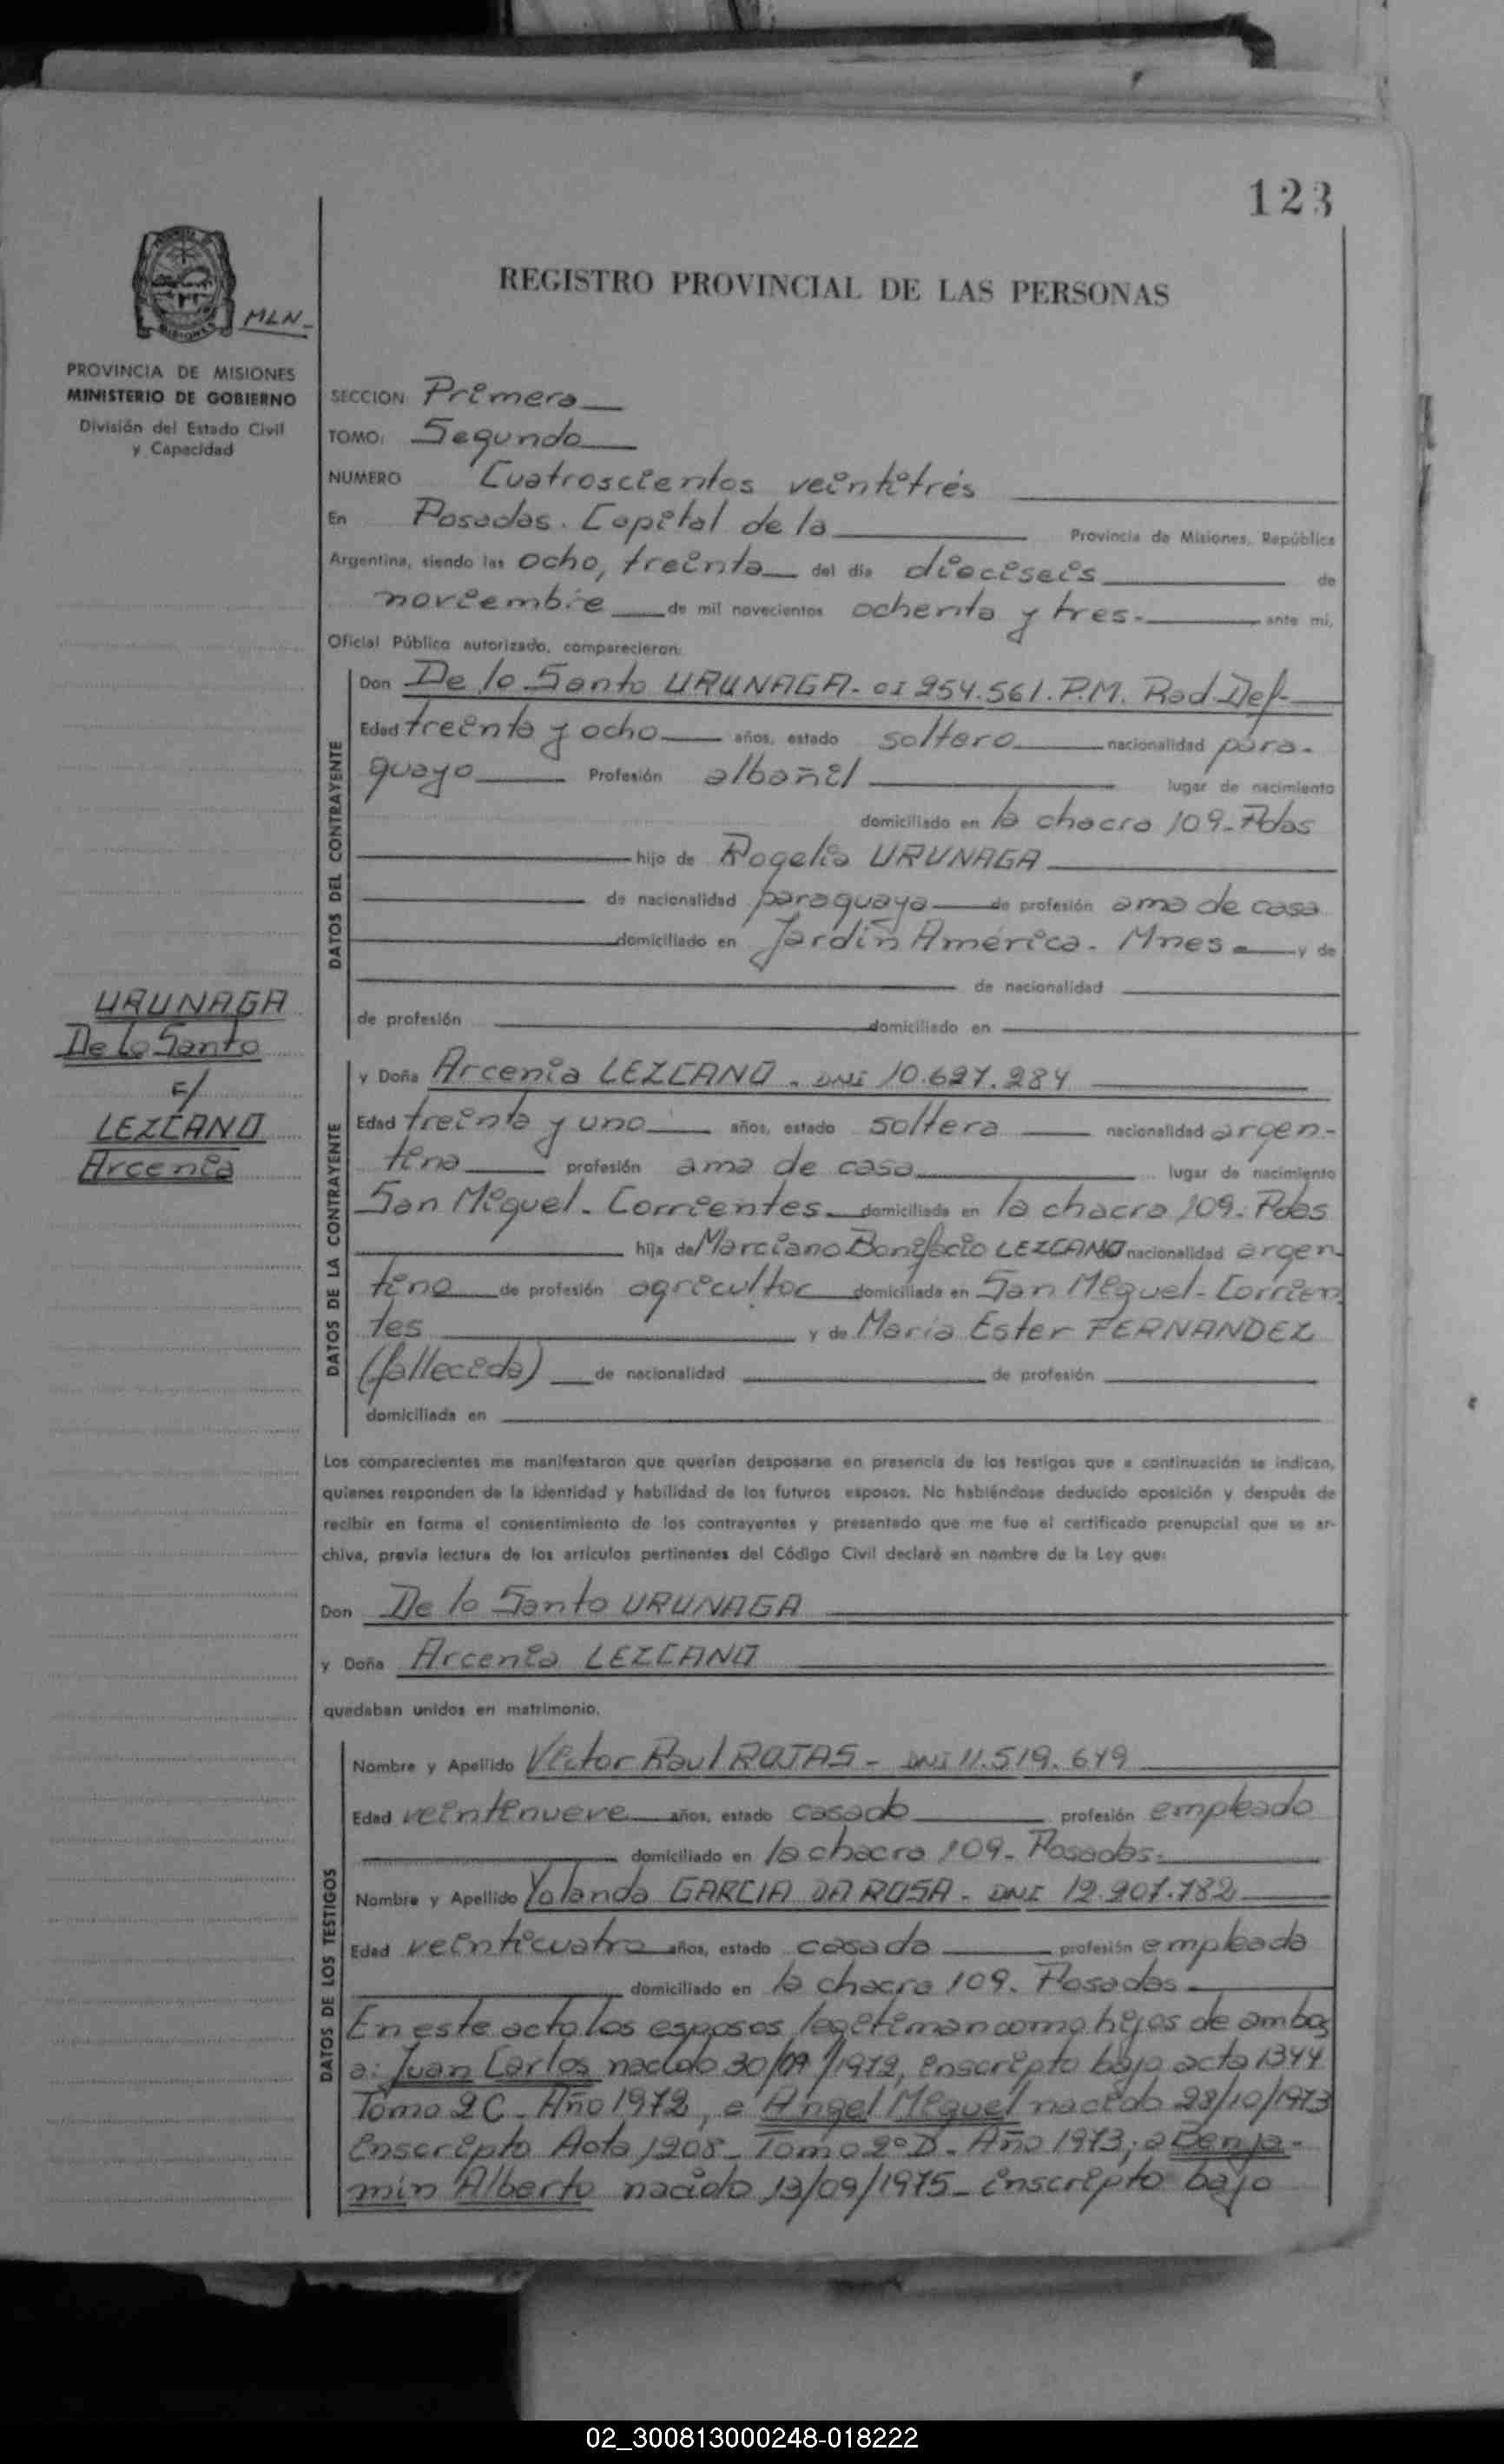 123
REGISTRO PROVINCIAL DE LAS PERSONAS
MISIONES
MLN-
PROVINCIA DE MISIONES
MINISTERIO DE GOBIERNO
División del Estado Civil
y Capacidad
SECCION: Primera
TOMO: Segundo
NUMERO Cuatroscientos veintitrés
En Posadas. Capital de la Provincia de Misiones, República
Argentina, siendo las ocho, treinta del día dieciseis de
noviembre de mil novecientos ochenta y tres.- ante mi,
Oficial Público autorizado, comparecieron:
DATOS DEL CONTRAYENTE
Don De lo Santo URUNAGA. CI 254.561. P.M. Rad. Def-
Edad treinta y ocho años, estado soltero nacionalidad para-
guayo Profesión albañil lugar de nacimiento
domiciliado en la chacra 109-Pdas
hijo de Rogelia URUNAGA
de nacionalidad paraguaya de profesión ama de casa
domiciliado en Jardín América. Mnes- y de
de nacionalidad
de profesión domiciliado en
URUNAGA
De Lo Santo
c/
LEZCANO
Arcenia
DATOS DE LA CONTRAYENTE
y Doña Arcenia LEZCANO . DNI 10.627.284
Edad treinta y uno años, estado soltera nacionalidad argen-
tina profesión ama de casa lugar de nacimiento
San Miguel. Corrientes. domiciliada en la chacra 109. Pdas
hija de Marciano Bonifacio LEZCANO nacionalidad argen
tino de profesión agricultor domiciliada en San Miguel-Corrien
tes y de María Ester FERNANDEZ
(fallecida) de nacionalidad de profesión
domiciliada en
Los comparecientes me manifestaron que querían desposarse en presencia de los testigos que a continuación se indican,
quienes responden de la identidad y habilidad de los futuros esposos. No habiéndose deducido oposición y después de
recibir en forma el consentimiento de los contrayentes y presentado que me fue el certificado prenupcial que se ar-
chiva, previa lectura de los artículos pertinentes del Código Civil declaré en nombre de la Ley que:
Don De lo Santo URUNAGA
y Doña Arcenia LEZCANO
quedaban unidos en matrimonio.
DATOS DE LOS TESTIGOS
Nombre y Apellido Víctor Raul ROJAS - DNI 11.519.649
Edad veintinueve años, estado casado profesión empleado
domiciliado en la chacra 109. Posadas.
Nombre y Apellido Yolanda GARCIA DA ROSA. DNI 12.207.782
Edad veinticuatro años, estado casada profesión empleada
domiciliado en la chacra 109. Posadas
En este acto los esposos legitiman como hijos de ambos
a: Juan Carlos nacido 30/09/1972, inscripto bajo acta 1344
Tomo 2C. Año 1972, a Angel Miguel nacido 28/10/1973
inscripto Acta 1208- Tomo 2°D. Año 1973; a Benja-
min Alberto nacido 13/09/1975- inscripto bajo
02_300813000248-018222